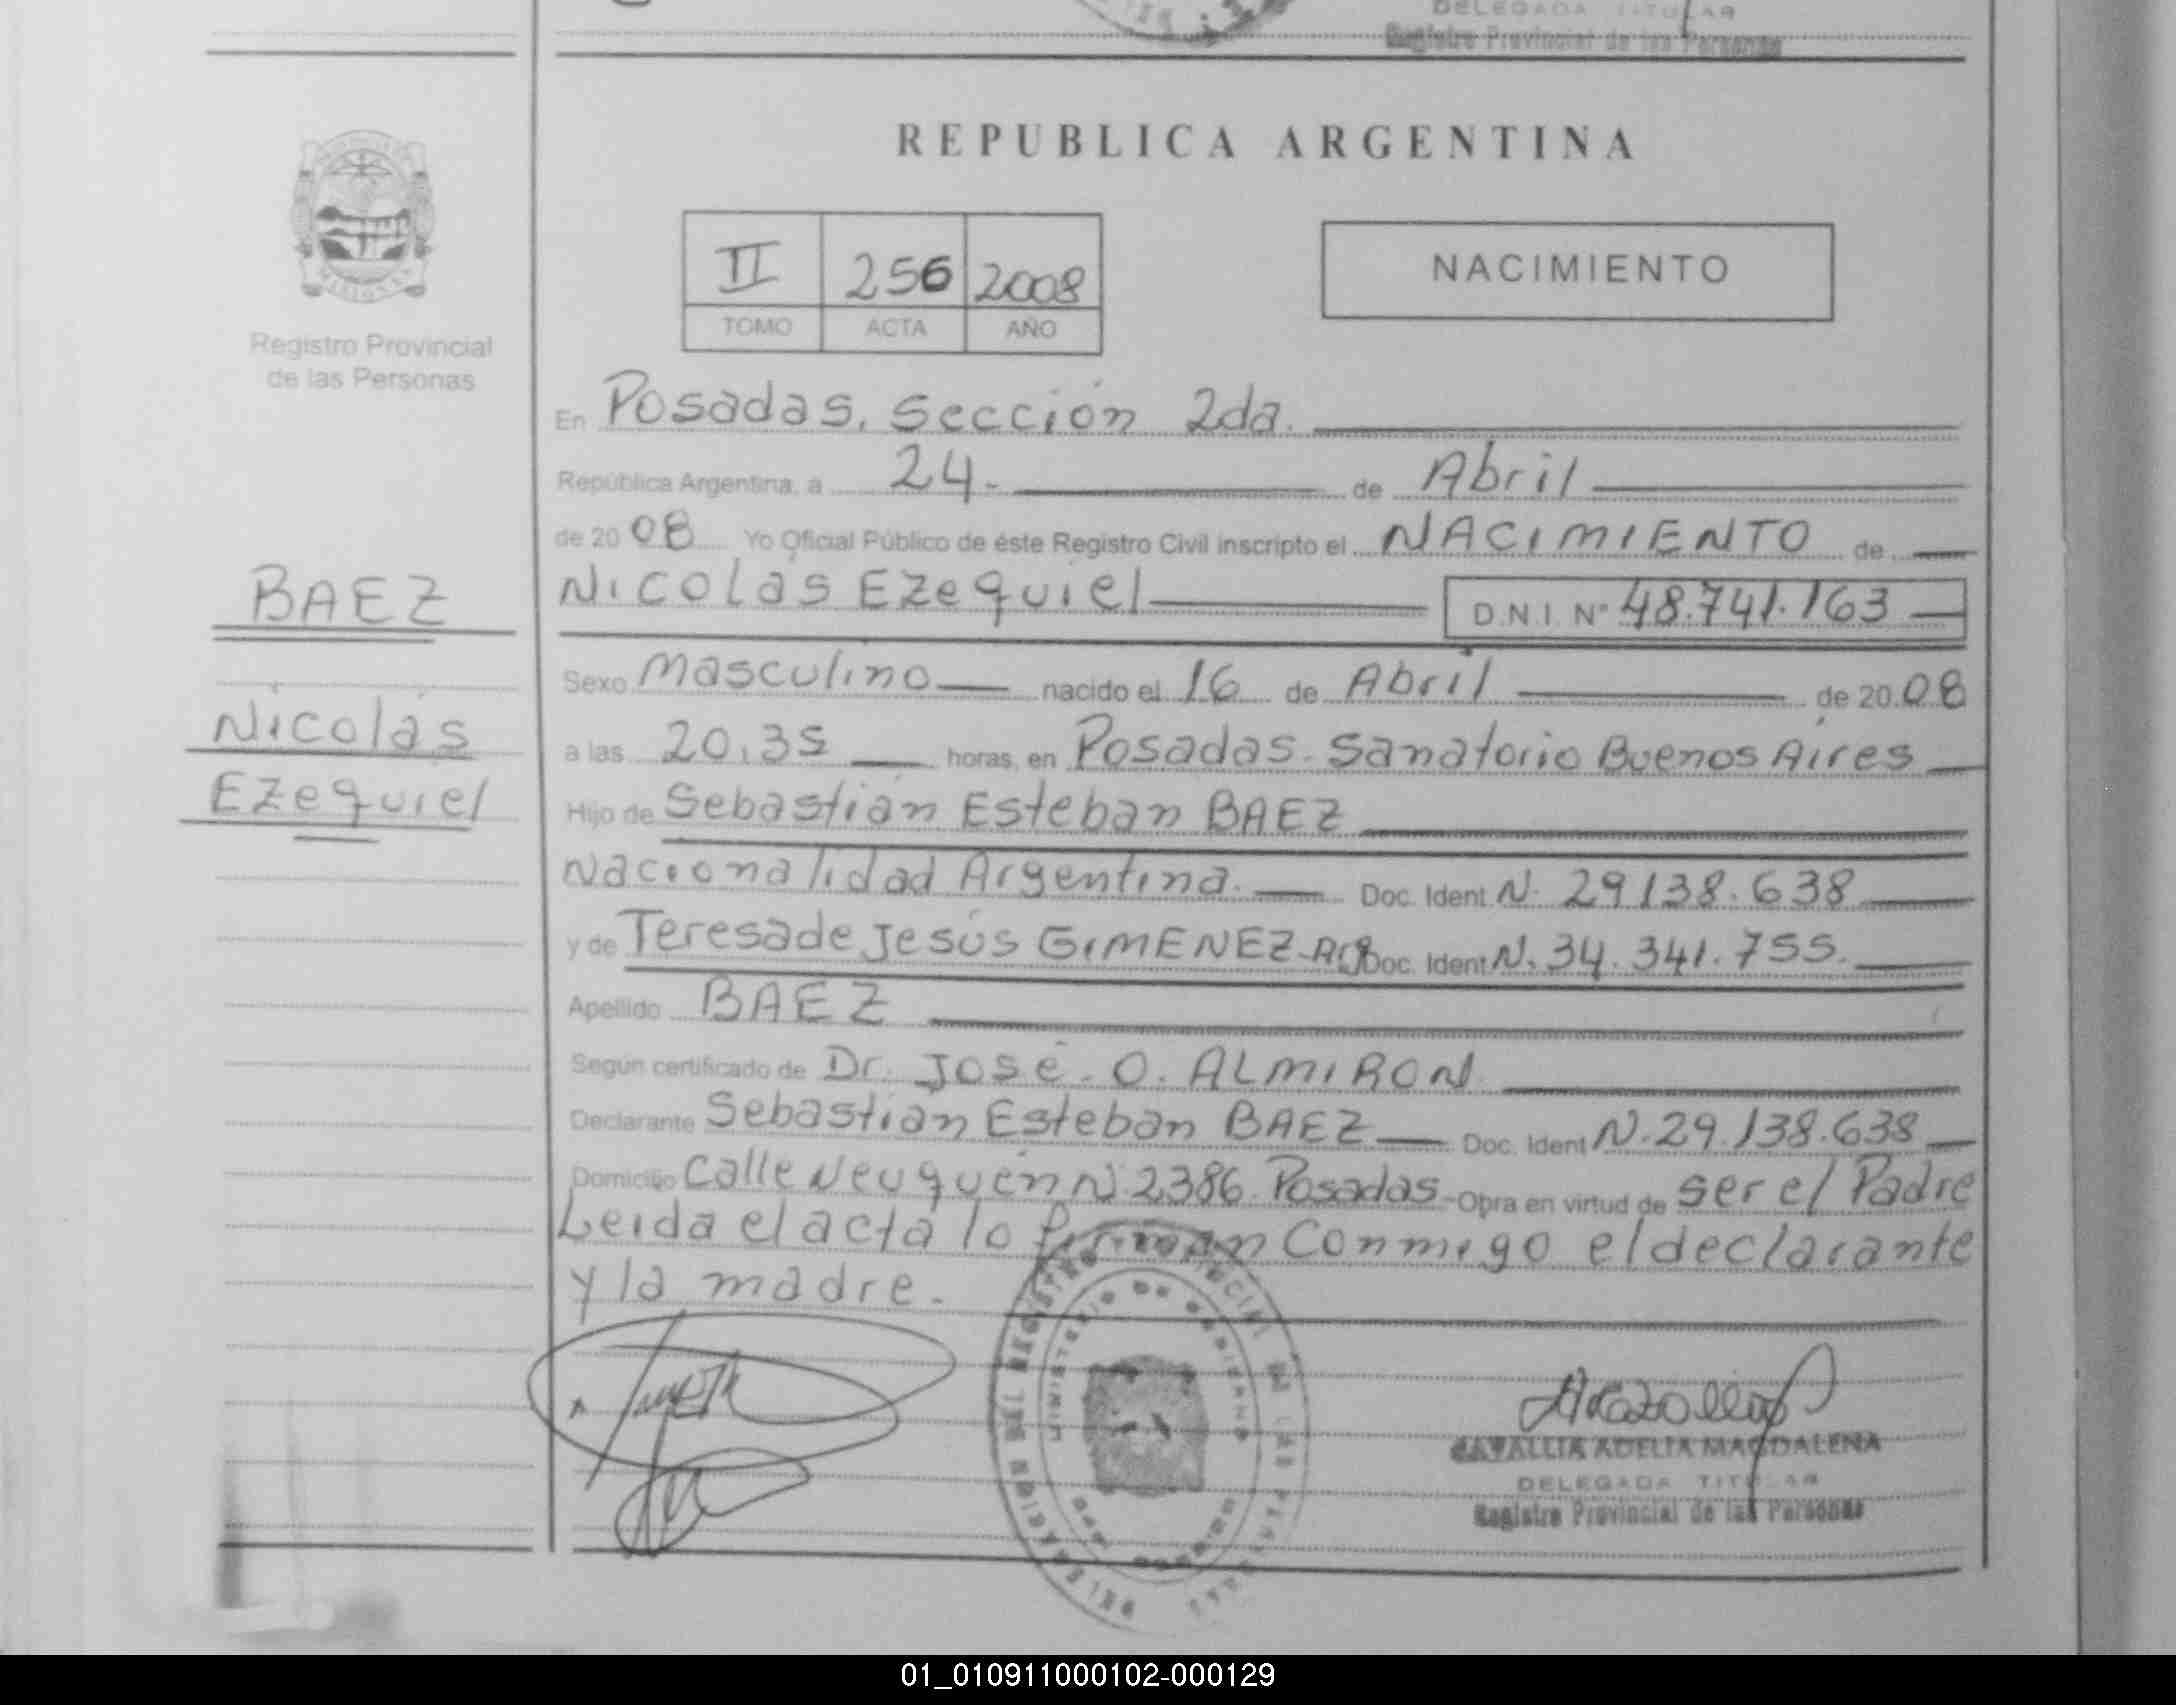 DELEGADA TITULAR
Registro Provincial de las Personas
REPUBLICA ARGENTINA
II 256 2008
TOMO ACTA AÑO
NACIMIENTO
Registro Provincial
de las Personas
En Posadas, Sección 2da.
República Argentina, a 24- de Abril
de 2008 Yo Oficial Público de éste Registro Civil inscripto el NACIMIENTO de
BAEZ
Nicolás Ezequiel D.N.I. Nº 48.741.163
Sexo Masculino nacido el 16 de Abril de 2008
Nicolás
a las 20,35 horas, en Posadas. Sanatorio Buenos Aires
Ezequiel
Hijo de Sebastián Esteban BAEZ
Nacionalidad Argentina. Doc. Ident N. 29138.638
y de Teresa de Jesús GIMENEZ-Arg Doc. Ident N. 34.341.755.
Apellido BAEZ
Según certificado de Dr. José. O. ALMIRON
Declarante Sebastián Esteban BAEZ Doc. Ident N.29.138.638
Domicilio Calle Neuquén N 2386. Posadas- Obra en virtud de ser el Padre
Leída el acta lo firman conmigo el declarante
y la madre.
DELEGACION DEL REGISTRO PROVINCIAL DE LAS PERSONAS
MINISTERIO DE GOBIERNO
CAVALLIA ADELIA MAGDALENA
DELEGADA TITULAR
Registro Provincial de las Personas
01_010911000102-000129